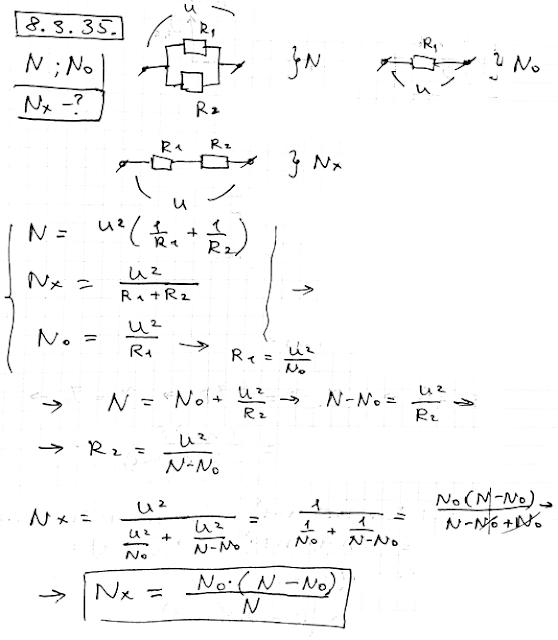 8.3.35.
N ; N₀
Nₓ - ?
u
R₁
R₂
} N
R₁
u
} N₀
R₁ R₂
u
} Nₓ
N = u² ( 1/R₁ + 1/R₂ )
Nₓ = u² / (R₁ + R₂) →
N₀ = u²/R₁ → R₁ = u²/N₀
→ N = N₀ + u²/R₂ → N - N₀ = u²/R₂ →
→ R₂ = u² / (N - N₀)
Nₓ = u² / ( u²/N₀ + u²/(N - N₀) ) = 1 / ( 1/N₀ + 1/(N - N₀) ) = N₀ (N - N₀) / (N - N₀ + N₀) →
→ Nₓ = N₀ · (N - N₀) / N